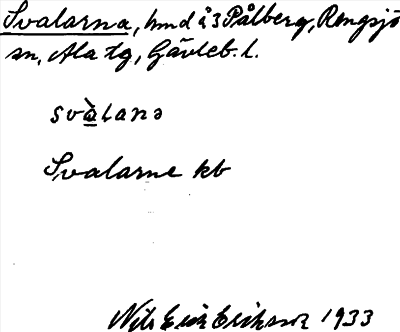 Svalarna, hmd å 3 Pålberg, Rengsjö
sn, Ala tg, Gävleb. l.
svàlanə
Svalarne kb
Nils Erik Eriksson 1933